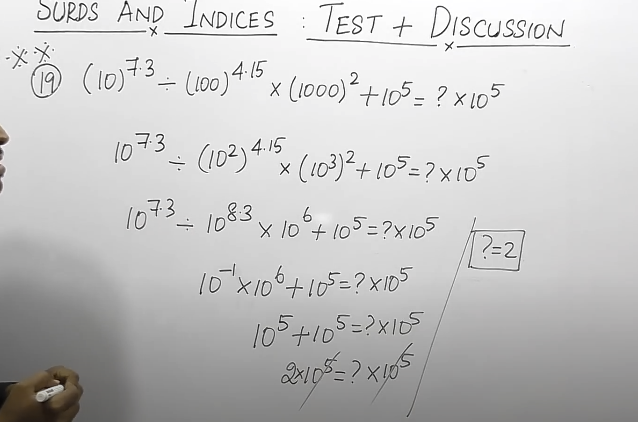 SURDS AND INDICES : TEST + DISCUSSION
19 (10)^7.3 ÷ (100)^4.15 × (1000)^2 + 10^5 = ? × 10^5
10^7.3 ÷ (10^2)^4.15 × (10^3)^2 + 10^5 = ? × 10^5
10^7.3 ÷ 10^8.3 × 10^6 + 10^5 = ? × 10^5
?=2
10^-1 × 10^6 + 10^5 = ? × 10^5
10^5 + 10^5 = ? × 10^5
2×10^5 = ? × 10^5